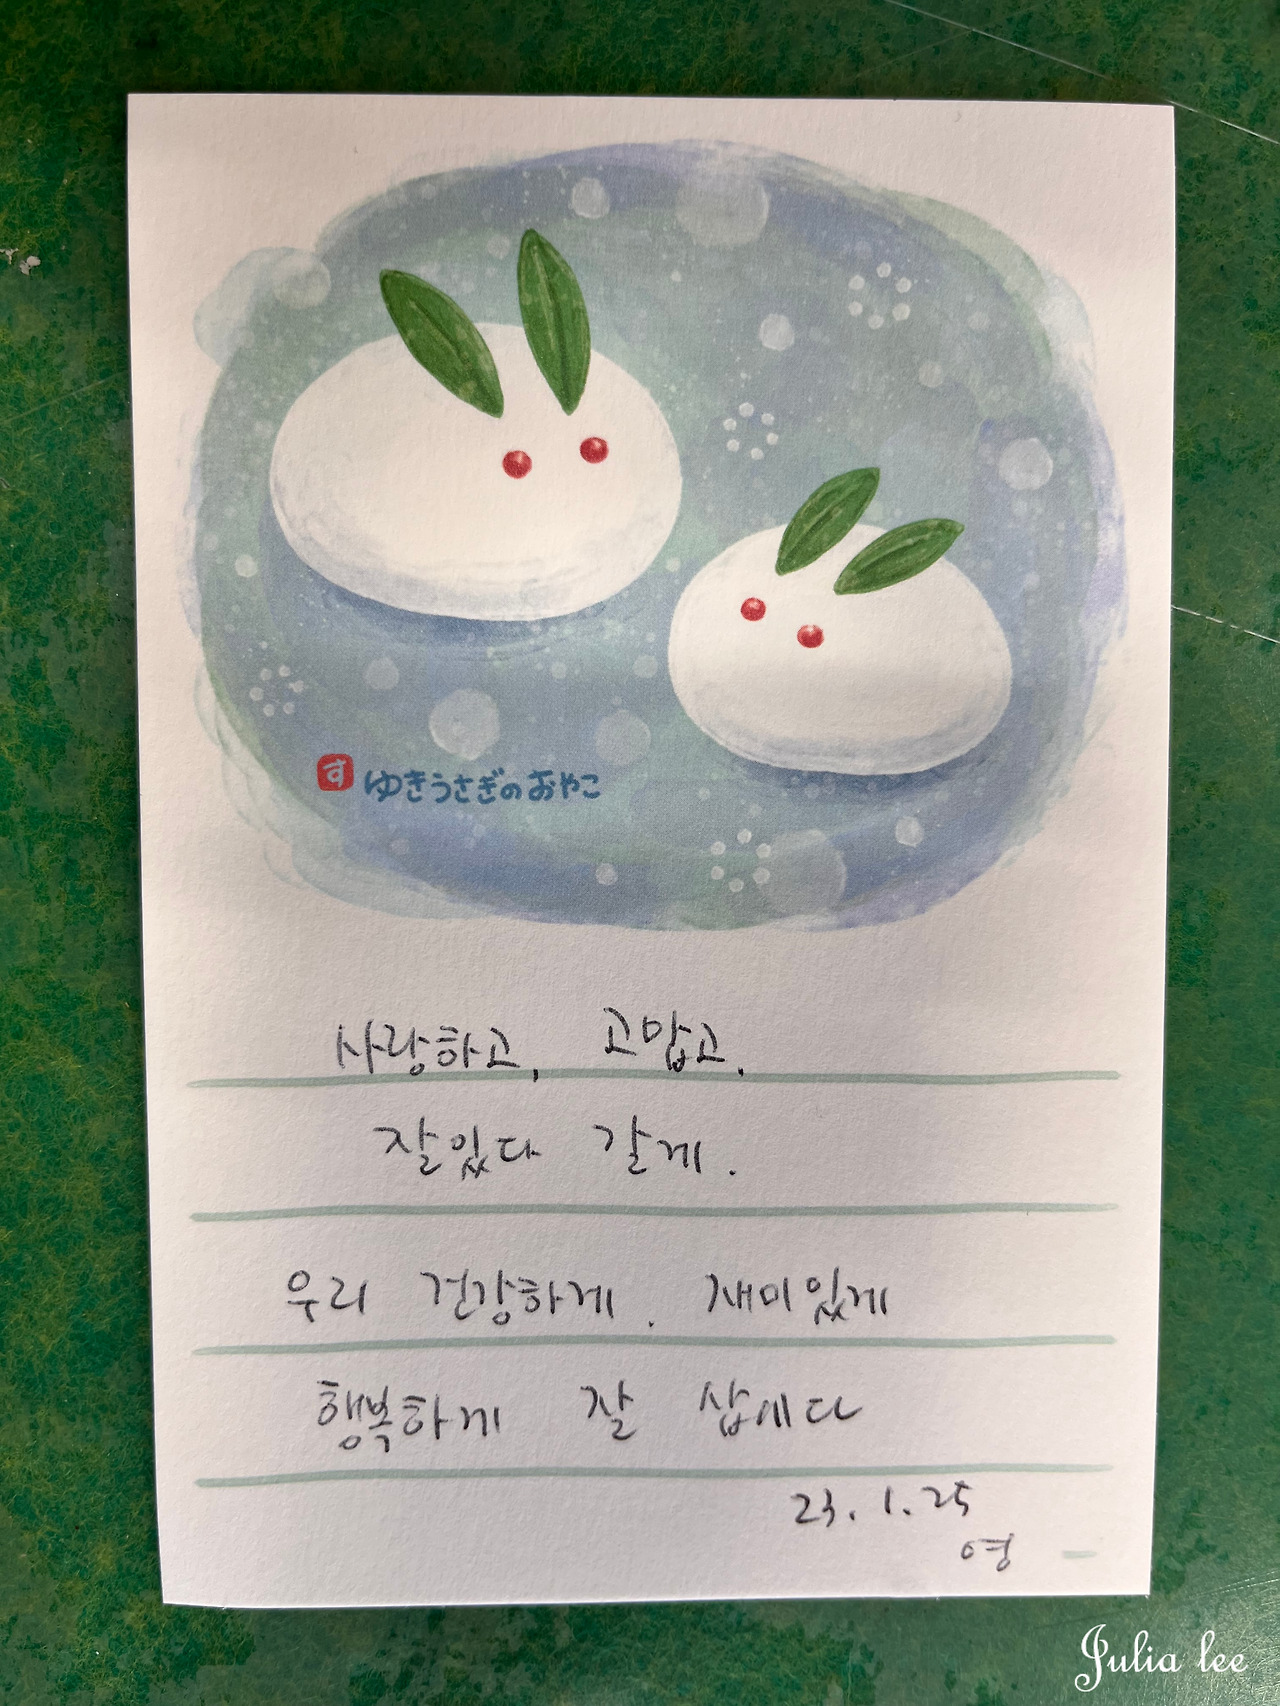 す ゆきうさぎのおやこ
사랑하고, 고맙고,
잘있다 갈게.
우리 건강하게. 재미있게
행복하게 잘 삽세다
23.1.25
영
Julia lee